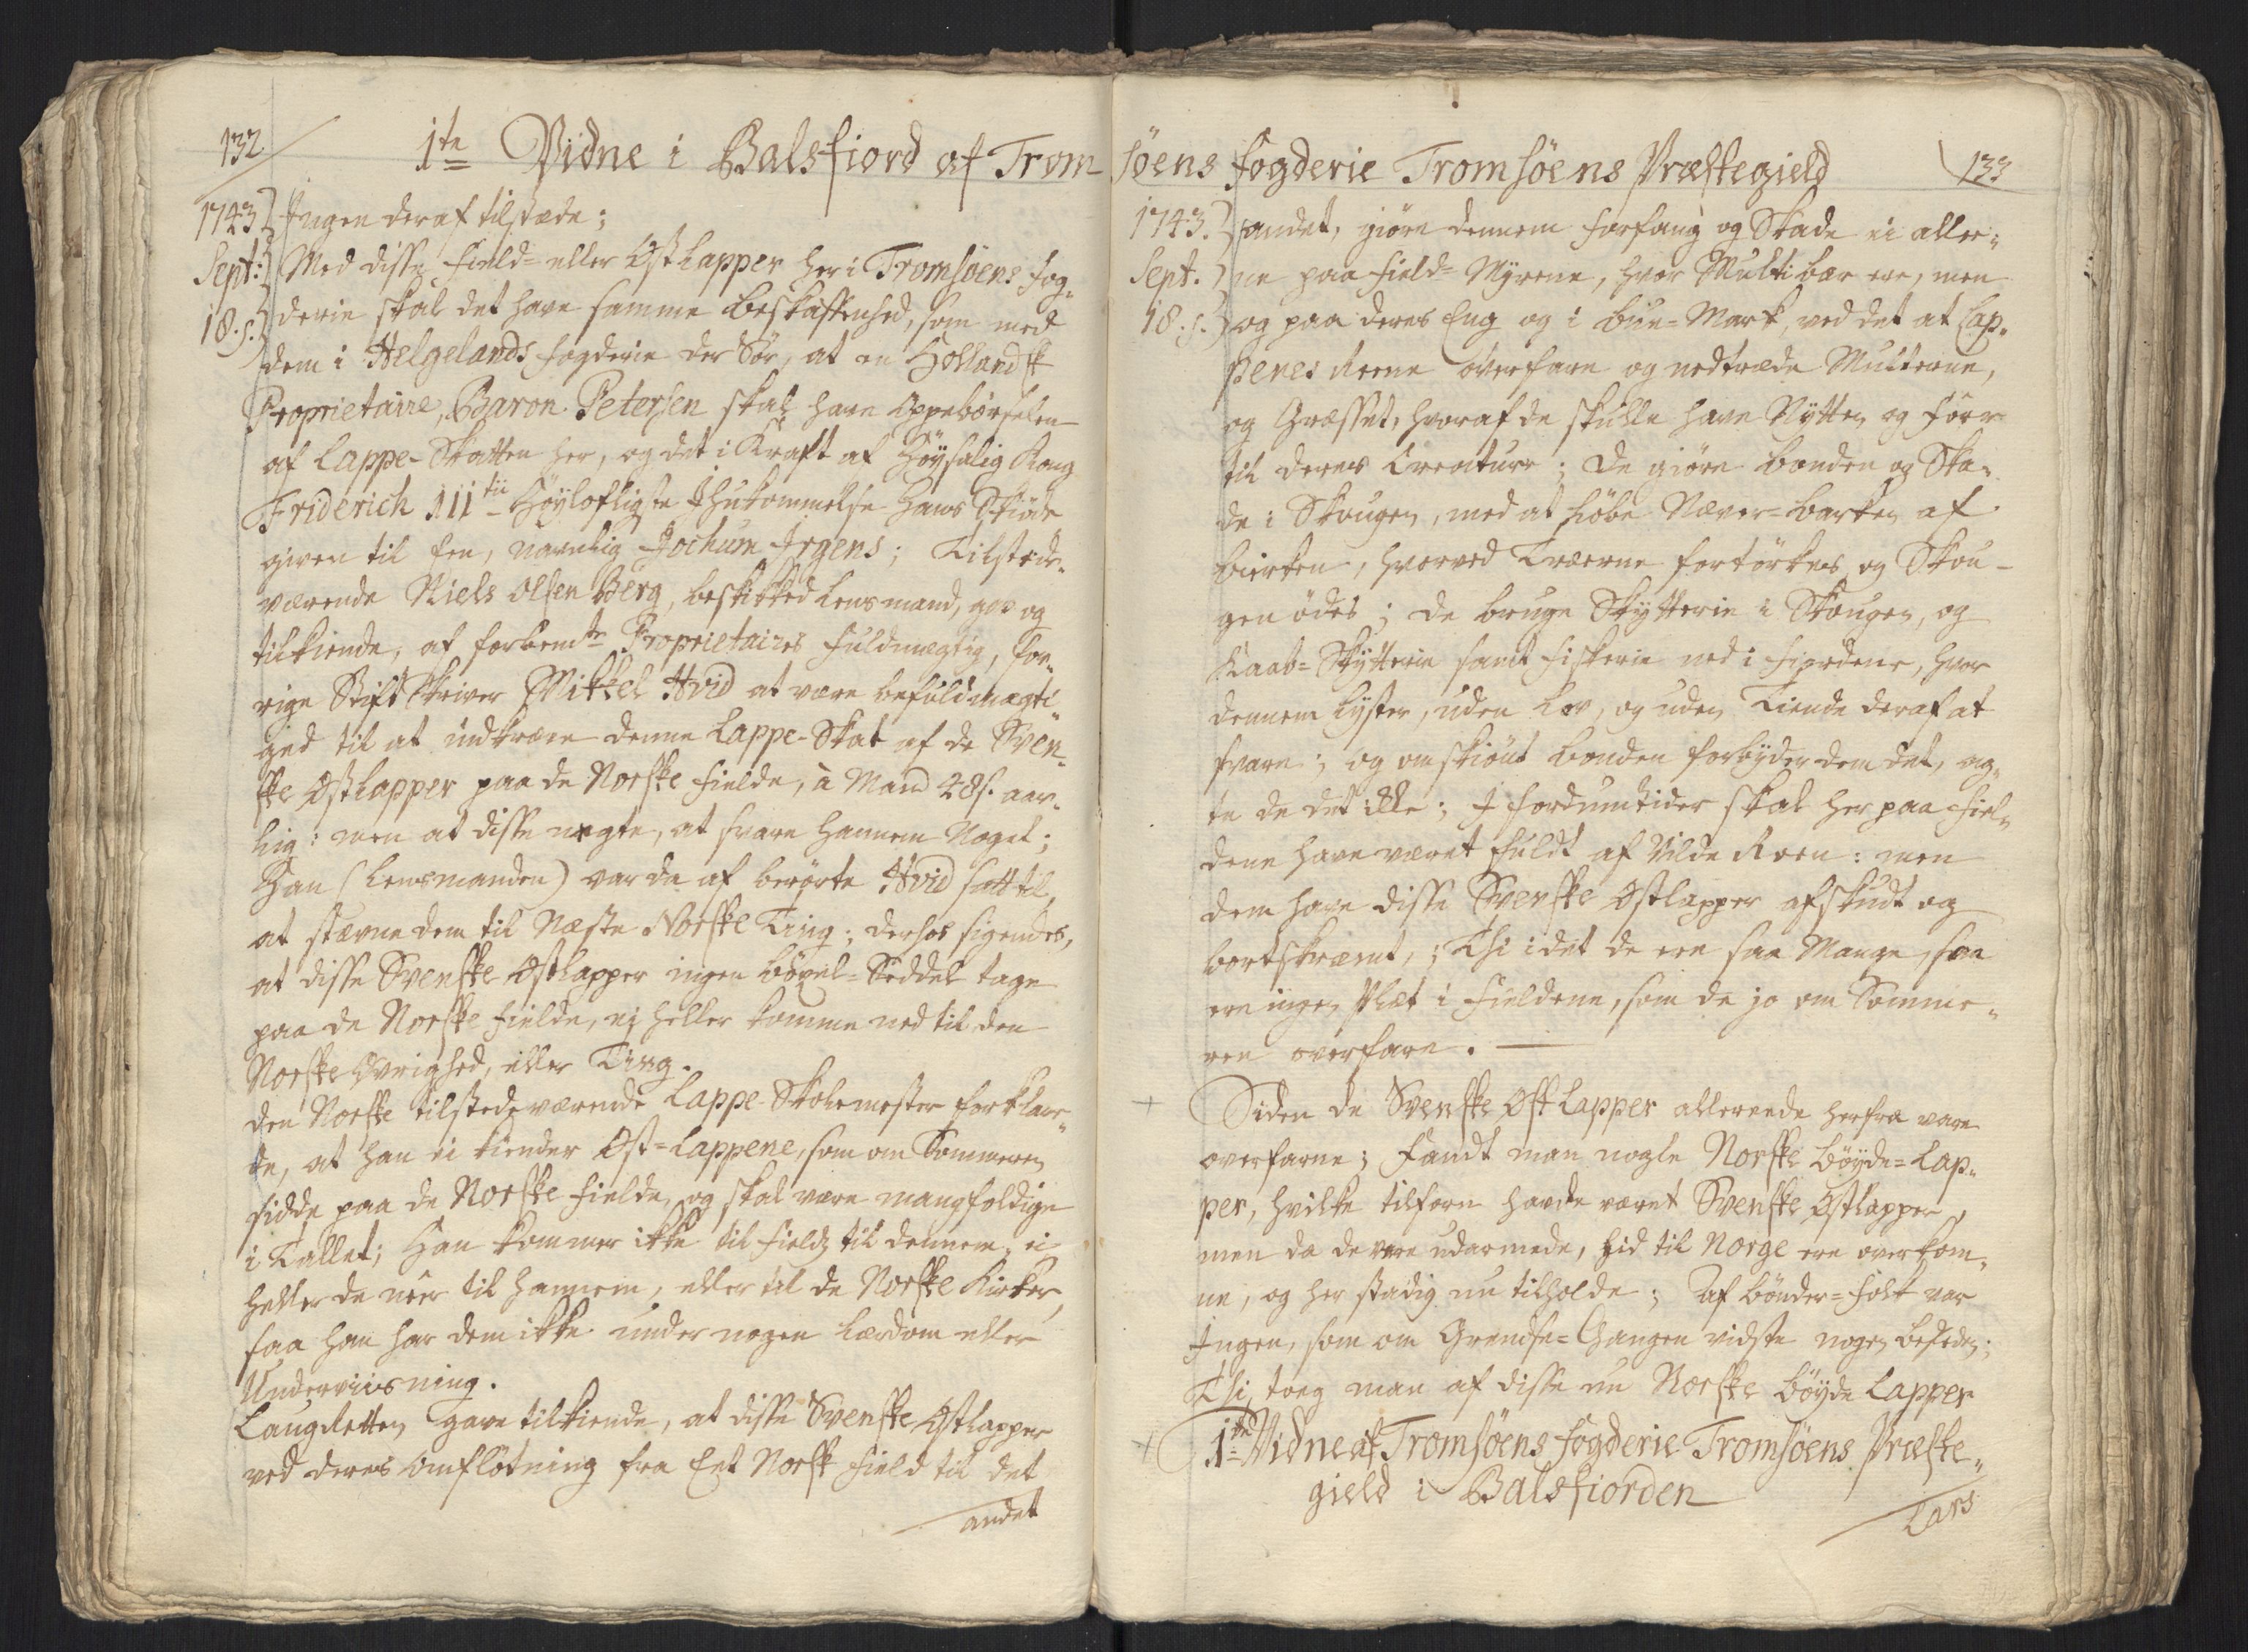 132
1te Vidne i Balsfiord af Trom
1743 Ingen deraf tilstæde;
Sept: Med disse Field- eller Østlapper her i Tromsøens Fog-
18. s. derie skal det have samme beskaffenhed, som med
dem i Helgelands Fogderie der Sør, at en Hollandsk
Proprietaire, Baron Petersen skal have Oppebørselen
af Lappe-Skatten her, og det i Kraft af Høysalig Kong
Friderich III tii Høyloflige Ihukommelse Hans Skiøde
given til een, navnlig Jochum Irgens; Tilstede-
værende Niels Olsen Berg, beskikked Lensmand, gav og
tilkiende, af forbemte Proprietaires Fuldmægtig, for-
rige Stiftskriver Mikkel Hvid at være befuldmægti-
ged til at indkræve denne Lappe-Skat af de Sven-
ske Østlapper paa de Norske Fielde, à Mand 28 s. aar-
lig: men at disse nægte, at svare hannem Noget;
Han (Lensmanden) var da af berørte Hvid satt til,
at stævne dem til Næste Norske Ting; derhos sigendes,
at disse Svenske Østlapper ingen böxel-Seddel tage
paa de Norske Fielde, ej heller komme ned til den
Norske Øvrighed, eller Ting.
den Norske tilstedeværende Lappe-Skolemester forklar-
de, at han ei kiender Øst-Lappene, som om Sommeren
sidde paa de Norske Fielde, og skal være mangfoldige
i Tallet; Han kommer ikke til Fields til dennem, ei
heller de neer til hannem, eller til de Norske Kirker,
saa han har dem ikke under nogen Lærdom eller
Underviisning.
LaugRetten gave tilkiende, at disse Svenske Østlapper
ved deres omflötning fra Eet Norsk Field til det
andet
søens Fogderie Tromsøens Præstegield
133
1743. andet, giøre dennem forfang og Skade ei aller-
Sept. ne paa Field-Myrene, hvor Multebær ere, men
18. s. og paa deres Eng og i büe-Mark, ved det at Lap-
penes Reene overfare og nedtræde Multerne,
og Græsset, hvoraf de skulle have Nytten og Föer
til deres Creature; De giøre bonden og Ska-
de i Skougen, med at Löbe Næver-barken af
birken, hvorved Træerne fortörkes og Skou-
gen ödes; De bruge Skytterie i Skougen, og
Kaab-Skytterie samt Fiskerie ned i Fiordene, hvor
dennem Lyster, uden Lov, og uden Tiende deraf at
svare; og omskiönt bonden forbyder dem det, ag-
te de det ikke; I fordumtider skal her paa Fiel-
dene have været fuldt af Vilde Reen: men
dem have disse Svenske Østlapper afskudt og
bortskræmt,; Thi i det de ere saa Mange, saa
ere ingen Plæt i Fieldene, som de jo om Somme-
ren overfare.
+ Siden de Svenske Østlapper allereede herfra vare
overfarne; Fandt man nogle Norske böyde-Lap-
per, hvilke tilforn havde været Svenske Østlapper,
men da de vare udarmede, hid til Norge ere overkom-
ne, og her stadig nu tilholde; Af bönder-Folk var
Ingen, som om Grendse-Gangen vidste nogen beskeden;
Thi, toeg man af disse nu Norske böyde Lapper
+ 1te Vidne af Tromsøens Fogderie Tromsøens Præste-
gield i Balsfiorden
Lars